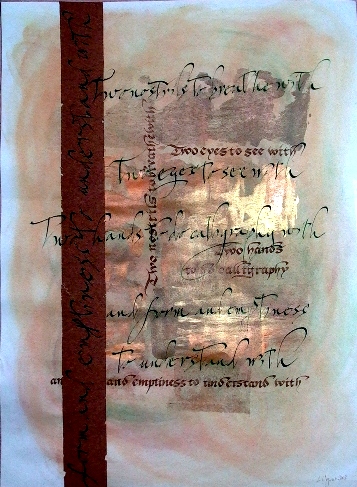 Two nostrils to breathe with
Two eyes to see with
Two eyes to see with
Two hands to do calligraphy with
Two hands
to do calligraphy
and form and emptiness
to understand with
and emptiness to understand with
Two nostrils to breathe with
form and emptiness to understand with